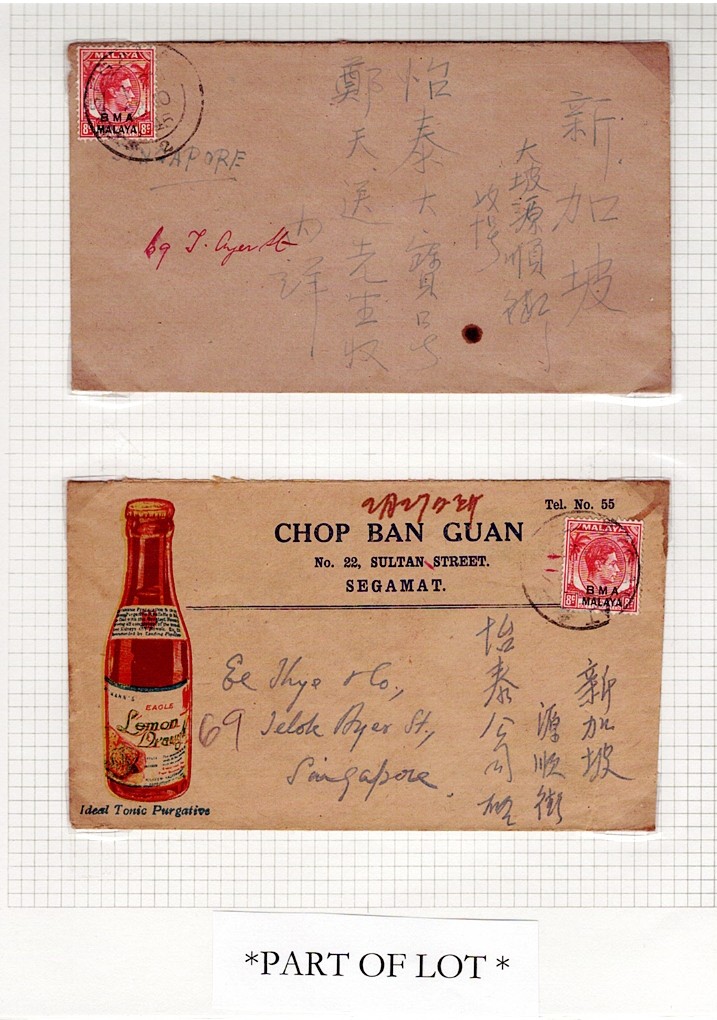 MALAYA
BMA
8c MALAYA 8c
SINGAPORE
69 T. Ayer St
新加坡
大坡源順街
怡泰大寶号
鄭天送先生收
内詳
2月27日
Tel. No. 55
CHOP BAN GUAN
No. 22, SULTAN STREET.
SEGAMAT.
MALAYA
BMA
8c MALAYA 8c
EAGLE
Lemon
Ideal Tonic Purgative
Ee Thye & Co.,
69 Telok Ayer St.,
Singapore.
新加坡
源順街
怡泰公司
*PART OF LOT *